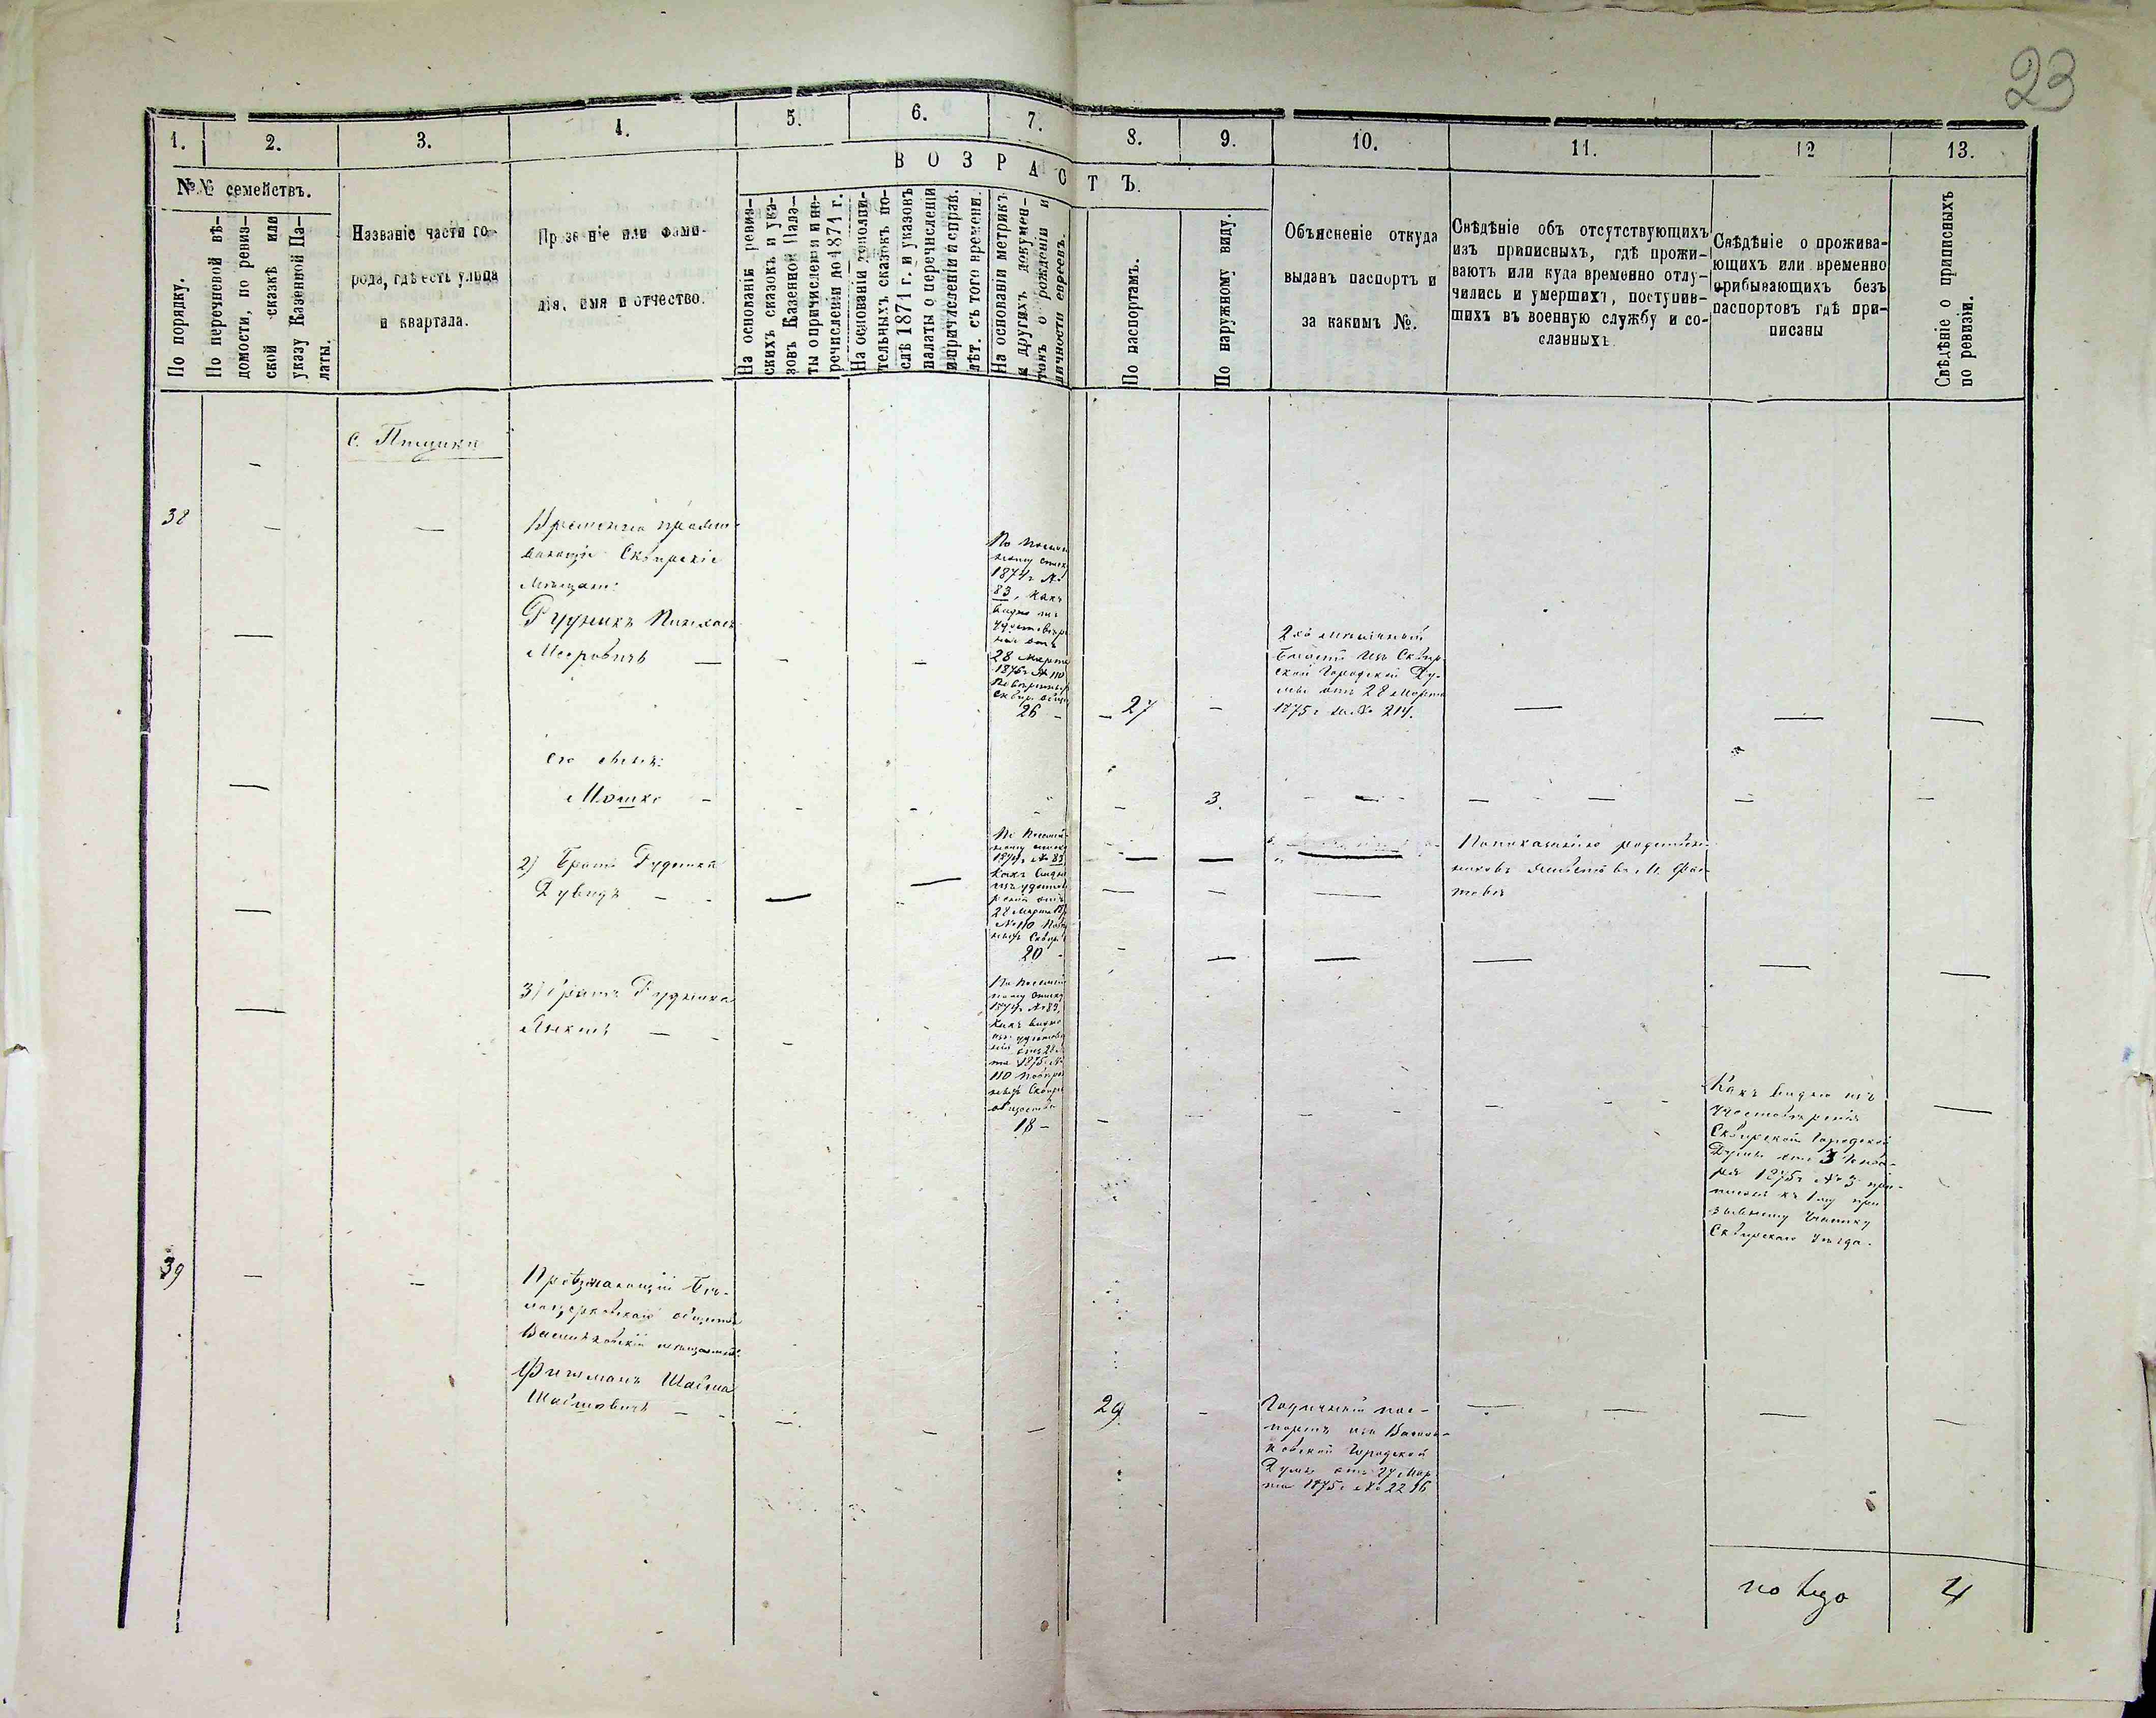 23
1.
2.
3.
4.
5.
6.
7.
8.
9.
10.
11.
12
13.
№№ семействъ.
По порядку.
По перечневой вѣ-
домости, по ревиз-
ской сказкѣ или
указу Казенной Па-
латы.
Названіе части го-
рода, гдѣ есть улица
и квартала.
Прозваніе или фами-
лія, имя и отчество.
ВОЗРАСТЪ.
На основаніи ревиз-
скихъ сказокъ и ука-
зовъ Казенной Пала-
ты о причисленіи и пе-
речисленіи до 1871 г.
На основаніи дополни-
тельныхъ сказокъ по-
слѣ 1871 г. и указовъ
палаты о перечисленіи
и причисленіи и справ.
лѣт. съ того времени.
На основаніи метрикъ
и другихъ докумен-
товъ о рожденіи и
личности евреевъ.
По паспортамъ.
По наружному виду.
Объясненіе откуда
выданъ паспортъ и
за какимъ №.
Свѣдѣніе объ отсутствующихъ
изъ приписныхъ, гдѣ прожи-
ваютъ или куда временно отлу-
чились и умершихъ, поступив-
шихъ въ военную службу и со-
сланныхъ.
Свѣдѣніе о прожива-
ющихъ или временно
прибывающихъ безъ
паспортовъ гдѣ при-
писаны
Свѣдѣніе о приписныхъ
по ревизіи.
с. Пищики
38
Временно прожи-
вающіе Сквирскіе
Мѣщане:
Рудникъ Пинхасъ
Мееровичъ
По посемей-
ному списку
1874 г №
83, какъ
видно изъ
удостовѣре-
нія отъ
28 Марта
1875 г № 110
26
27
2хъ мѣсячный
билетъ изъ Сквир-
ской Городской Ду-
мы отъ 28 Марта
1875 г за № 214.
Его сынъ:
Мошко
3.
2) Братъ Рудника
Дувидъ
По посемей-
ному списку
1874 г № 83
какъ видно
изъ удостовѣ-
ренія отъ
28 Марта
№ 110
20
По показанію родствен-
никовъ живетъ въ М. Фас-
товѣ
3) Братъ Рудника
Янкель
По посемей-
ному списку
1874 г № 83,
какъ видно
изъ удостовѣ-
1875 г №
110
общества
18
Какъ видно изъ
удостовѣренія
Сквирской Городской
Думы отъ 3 Янва-
ря 1875 г № 3 при-
писанъ къ 1му при-
зывному участку
Сквирскаго уѣзда.
39
Проѣзжающій Бѣ-
лоцерковскаго общества
Васильковскій мѣщанинъ:
Фишманъ Шая
29
Годичный пас-
портъ изъ Василь-
ковской Городской
Думы отъ 27 Мар-
та 1875 г № 2216
4